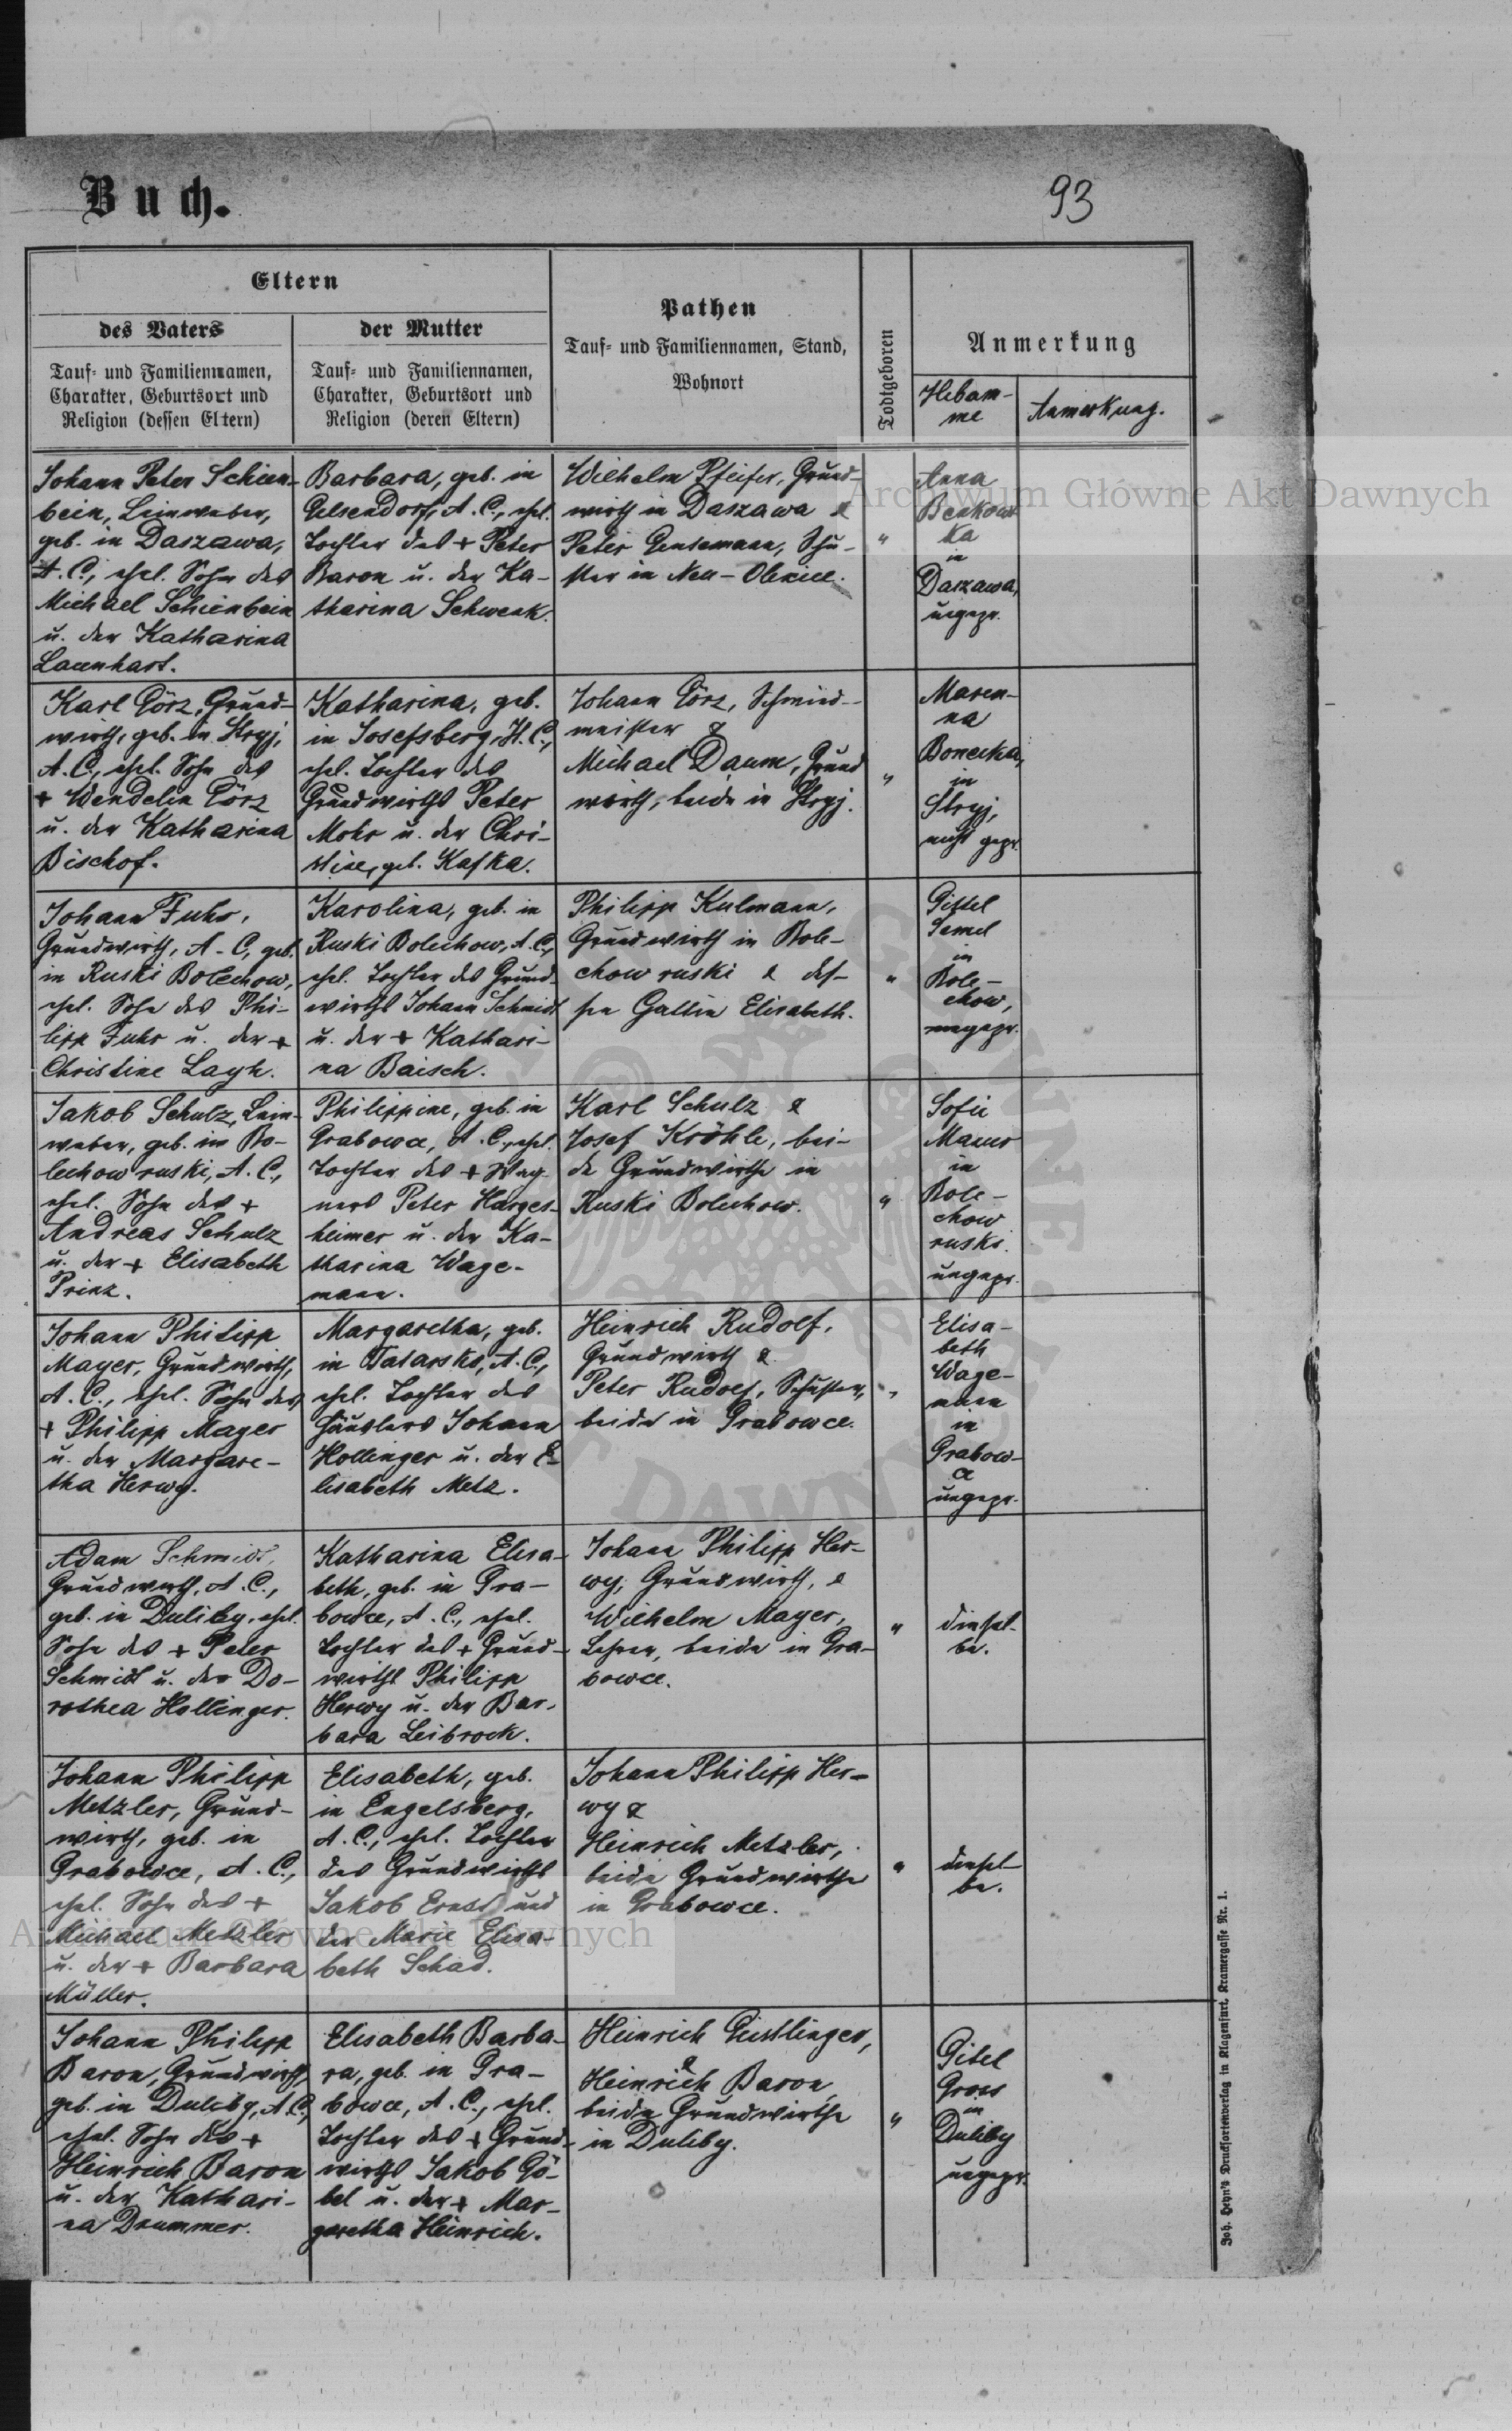 Buch.
93
Eltern
des Vaters
Tauf- und Familiennamen,
Charakter, Geburtsort und
Religion (dessen Eltern)
der Mutter
Tauf- und Familiennamen,
Charakter, Geburtsort und
Religion (deren Eltern)
Pathen
Tauf- und Familiennamen, Stand,
Wohnort
Todtgeboren
Anmerkung
Hebam-
me
Anmerkung.
Johann Peter Schien-
bein, Leinweber,
geb. in Daszawa,
A. C., ehel. Sohn des
Michael Schienbein
u. der Katharina
Lauenhart.
Barbara, geb. in
Gelsendorf, A. C., ehel.
Tochter des + Peter
Baron u. der Ka-
tharina Schwenk.
Wilhelm Pfeifer, Grund-
wirth in Daszawa &
Peter Gensemann, Schu-
ster in Neu-Olexice.
"
Anna
ka
in
Daszawa,
ungepr.
Karl Görz, Grund-
wirth, geb. in Stryj,
A. C., ehel. Sohn des
+ Wendelin Görz
u. der Katharina
Bischof.
Katharina, geb.
in Josefsberg, H. C.,
ehel. Tochter des
Grundwirths Peter
Mohr u. der Chri-
stine, geb. Kafka.
Johann Görz, Schmied-
meister &
Michael Daum, Grund
wirth, beide in Stryj.
"
Maren-
na
Bonecka,
in
Stryj,
nicht gepr.
Johann Fuhr,
Grundwirth, A. C., geb.
in Ruski Bolechow,
ehel. Sohn des Phi-
lipp Fuhr u. der +
Christine Layh.
Karolina, geb. in
Ruski Bolechow, A. C.,
ehel. Tochter des Grund-
wirths Johann Schmidt
u. der + Kathari-
na Baisch.
Philipp Kulmann,
Grundwirth in Bole-
chow ruski & des-
sen Gattin Elisabeth.
"
Gittel
Samel
in
Bole-
chow,
ungepr.
Jakob Schulz, Lein-
weber, geb. in Bo-
lechow ruski, A. C.,
ehel. Sohn des +
Andreas Schulz
u. der + Elisabeth
Prinz.
Philippine, geb. in
Grabowce, A. C., ehel.
Tochter des + Wag-
ners Peter Harges-
heimer u. der Ka-
tharina Wage-
mann.
Karl Schulz &
Josef Kröhle, bei-
de Grundwirthe in
Ruski Bolechow.
"
Sofie
Maurer
in
Bole-
chow
ruski.
ungepr.
Johann Philipp
Mayer, Grundwirth,
A. C., ehel. Sohn des
+ Philipp Mayer
u. der Margare-
tha Herwy.
Margaretha, geb.
in Tatarsko, A. C.,
ehel. Tochter des
Häuslers Johann
Hollinger u. der E-
lisabeth Metz.
Heinrich Rudolf,
Grundwirth &
Peter Rudolf, Schuster,
beide in Grabowce.
"
Elisa-
beth
Wage-
mann
in
Grabow-
ce
ungepr.
Adam Schmidt,
Grundwirth, A. C.,
geb. in Duliby, ehel.
Sohn des + Peter
Schmidt u. der Do-
rothea Hollinger.
Katharina Elisa-
beth, geb. in Gra-
bowce, A. C., ehel.
Tochter des + Grund-
wirths Philipp
Herwy u. der Bar-
bara Leibrock.
Johann Philipp Her-
wy, Grundwirth, &
Wilhelm Mayer,
Lehrer, beide in Gra-
bowce.
"
diesel-
be.
Johann Philipp
Metzler, Grund-
wirth, geb. in
Grabowce, A. C.,
ehel. Sohn des +
Michael Metzler
u. der + Barbara
Müller.
Elisabeth, geb.
in Engelsberg,
A. C., ehel. Tochter
des Grundwirths
Jakob Ernst und
der Marie Elisa-
beth Schad.
Johann Philipp Her-
wy &
Heinrich Metzler,
beide Grundwirthe
in Grabowce.
"
diesel-
be.
Johann Philipp
Baron, Grundwirth,
geb. in Duliby, A. C.,
ehel. Sohn des +
Heinrich Baron
u. der Kathari-
na Drummer.
Elisabeth Barba-
ra, geb. in Gra-
bowce, A. C., ehel.
Tochter des + Grund-
wirths Jakob Gö-
bel u. der + Mar-
garetha Heinrich.
Heinrich Geistlinger,
&
Heinrich Baron,
beide Grundwirthe
in Duliby.
"
Gitel
Gross
in
Duliby
ungepr.
Joh. Heyn's Drucksortenverlag in Klagenfurt, Kramergasse Nr. 1.
Archiwum Główne Akt Dawnych
Archiwum Główne Akt Dawnych